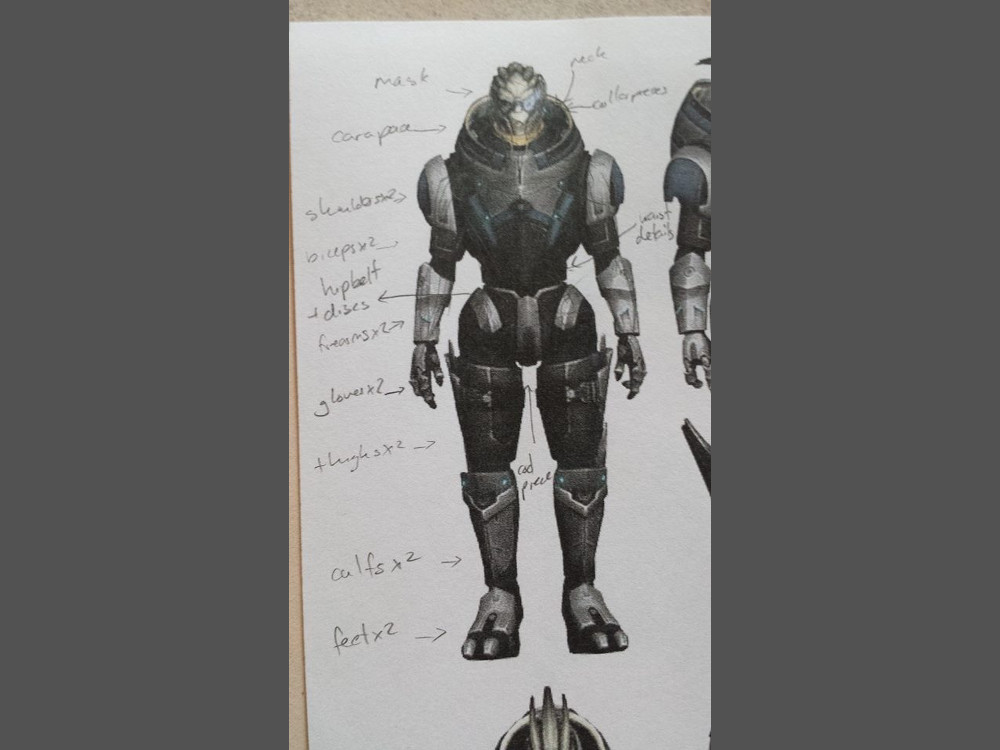 mask
neck
collarpieces
carapace
shoulders x2
waist
details
biceps x2
hipbelt
+ discs
forearms x2
gloves x2
thighs x2
cod
piece
calfs x2
feet x2